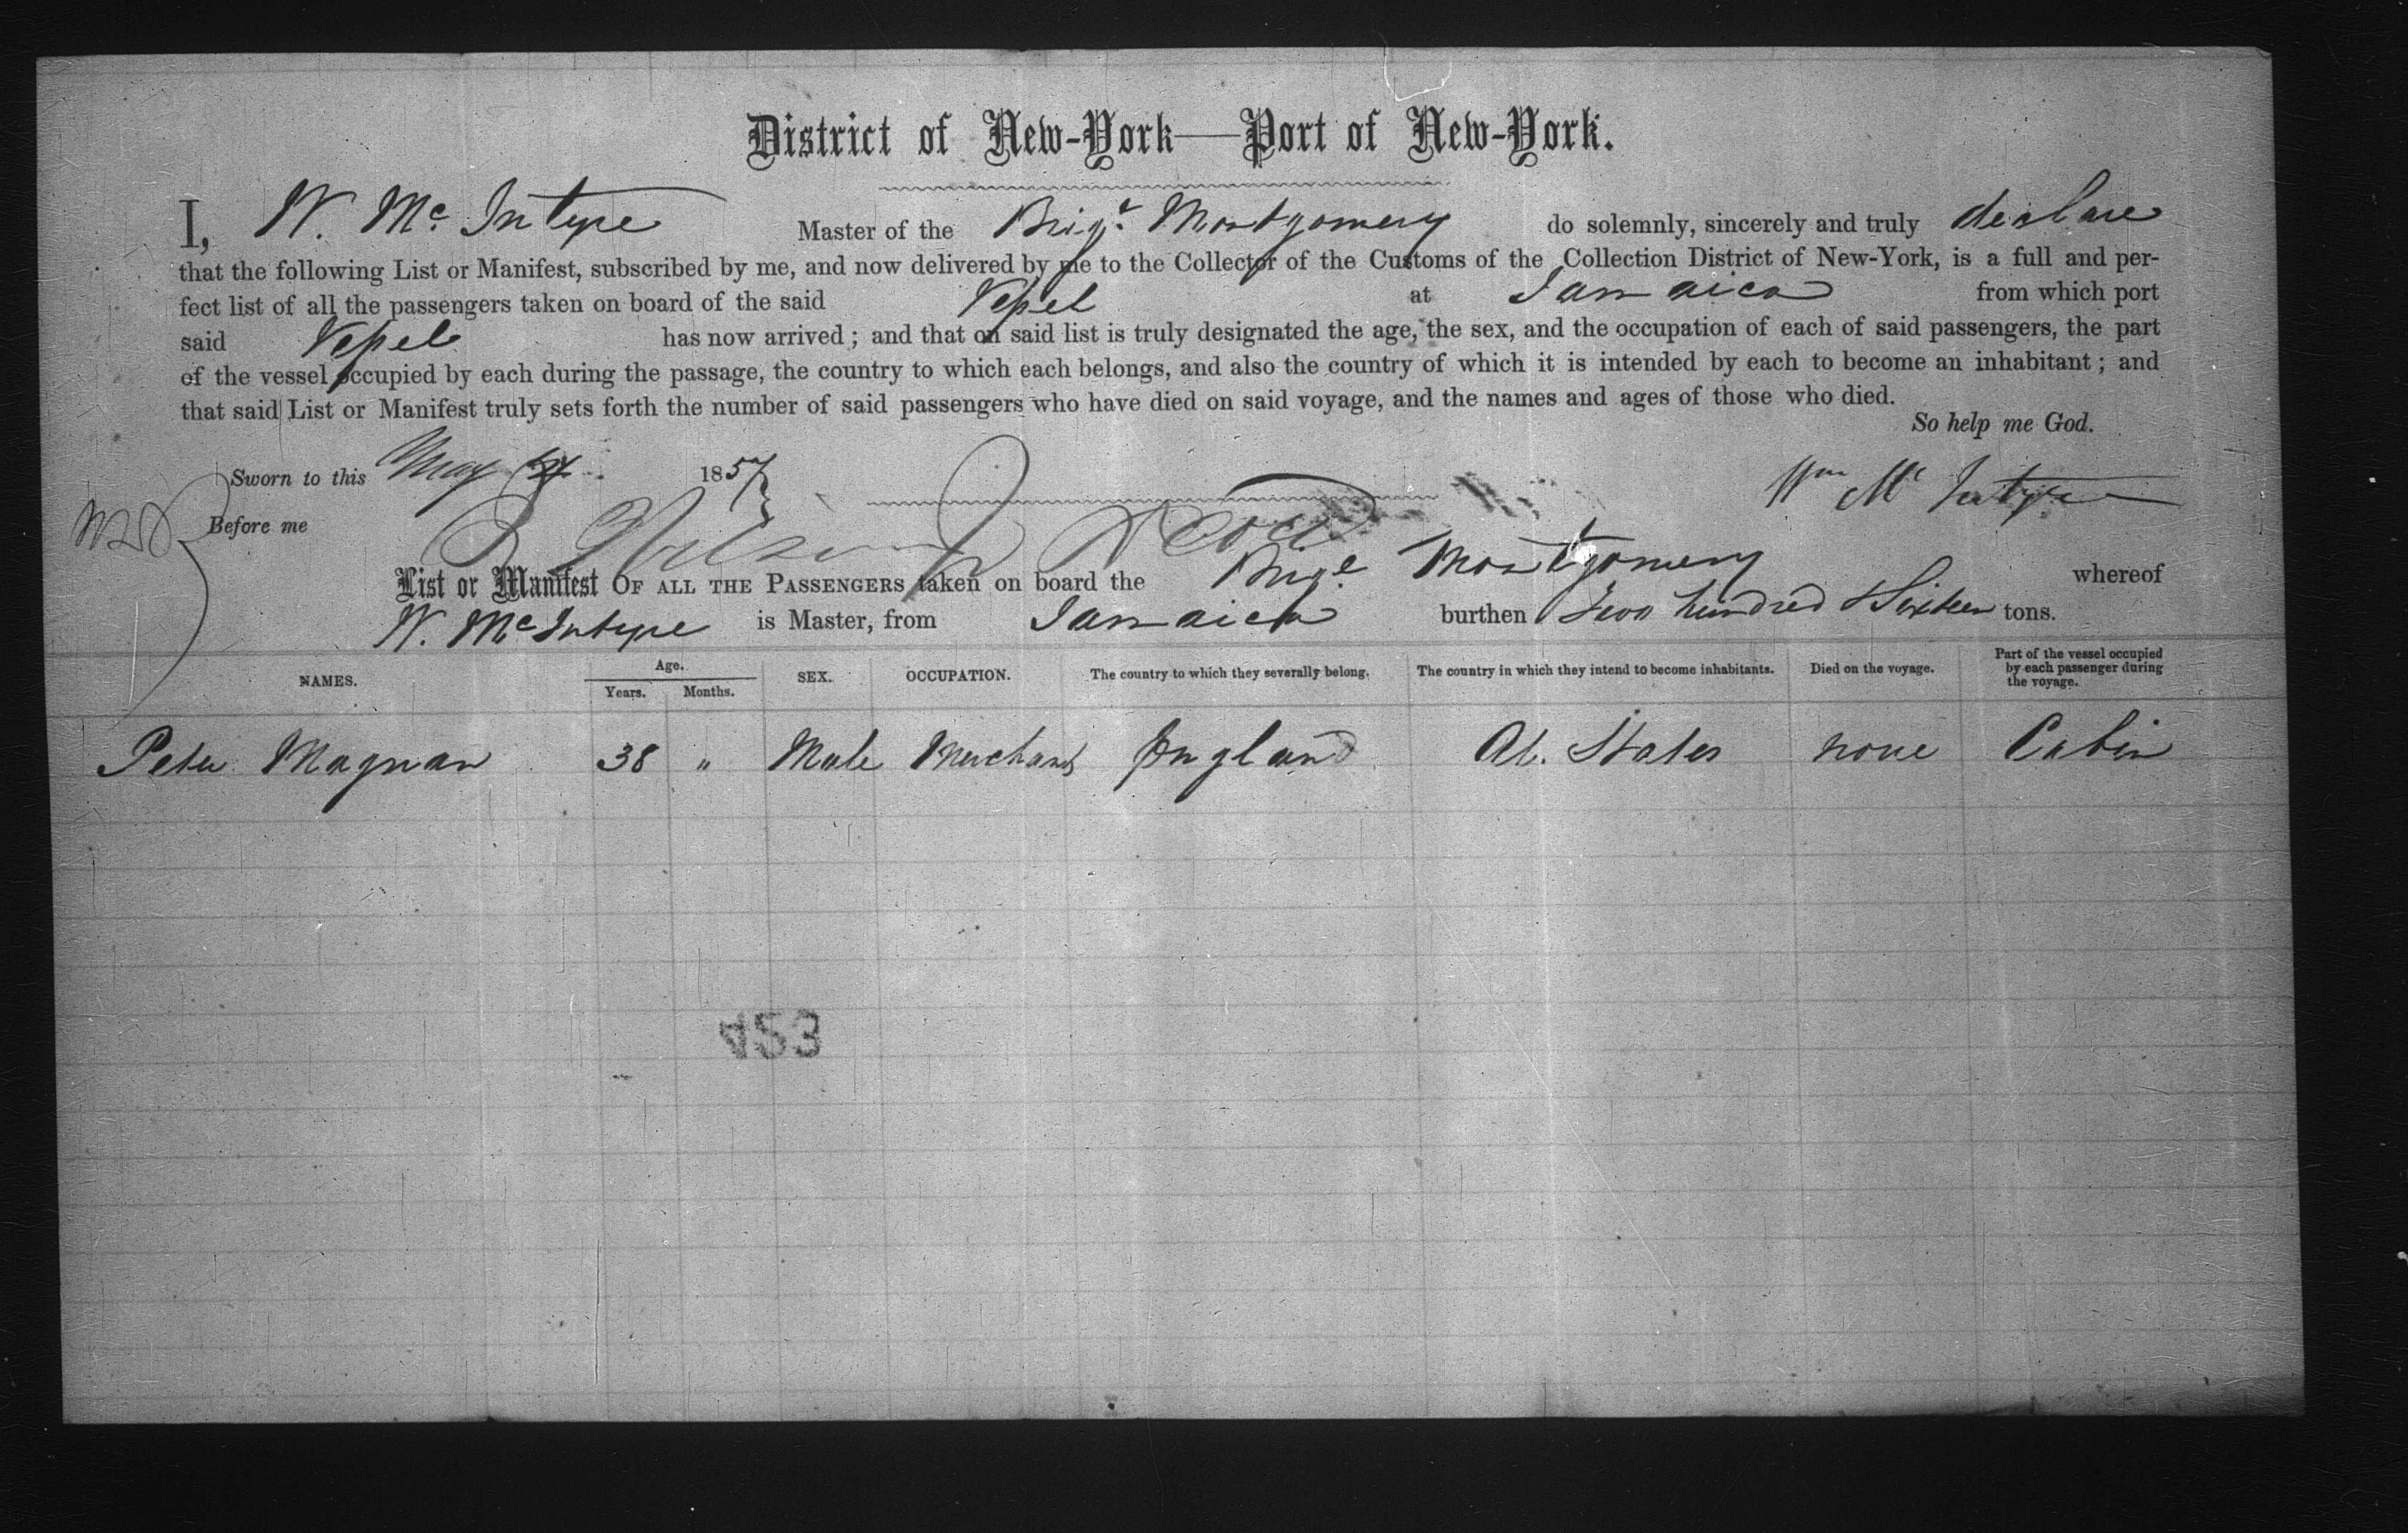 District of New-York—Port of New-York.
I, W. Mc Intyre Master of the Brigt Montgomery do solemnly, sincerely and truly declare
that the following List or Manifest, subscribed by me, and now delivered by me to the Collector of the Customs of the Collection District of New-York, is a full and per-
fect list of all the passengers taken on board of the said Veſsel at Jamaica from which port
said Veſsel has now arrived; and that on said list is truly designated the age, the sex, and the occupation of each of said passengers, the part
of the vessel occupied by each during the passage, the country to which each belongs, and also the country of which it is intended by each to become an inhabitant; and
that said List or Manifest truly sets forth the number of said passengers who have died on said voyage, and the names and ages of those who died.
So help me God.
Sworn to this May 1857
Wm Mc Intyre
Before me
List or Manifest OF ALL THE PASSENGERS taken on board the Brige Montgomery whereof
W. Mc Intyre is Master, from Jamaica burthen Two hundred & Sixteen tons.
NAMES. Age. Years. Months. SEX. OCCUPATION. The country to which they severally belong. The country in which they intend to become inhabitants. Died on the voyage. Part of the vessel occupied by each passenger during the voyage.
Peter Magnan 38 " Male Merchant England States none Cabin
453